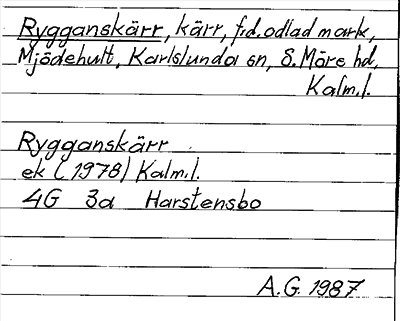 Rygganskärr, kärr, f.d. odlad mark,
Mjödehult, Karlslunda sn, S. Möre hd,
Kalm.l.
Rygganskärr
ek (1978) Kalm.l.
4G 3a Harstensbo
A.G. 1987